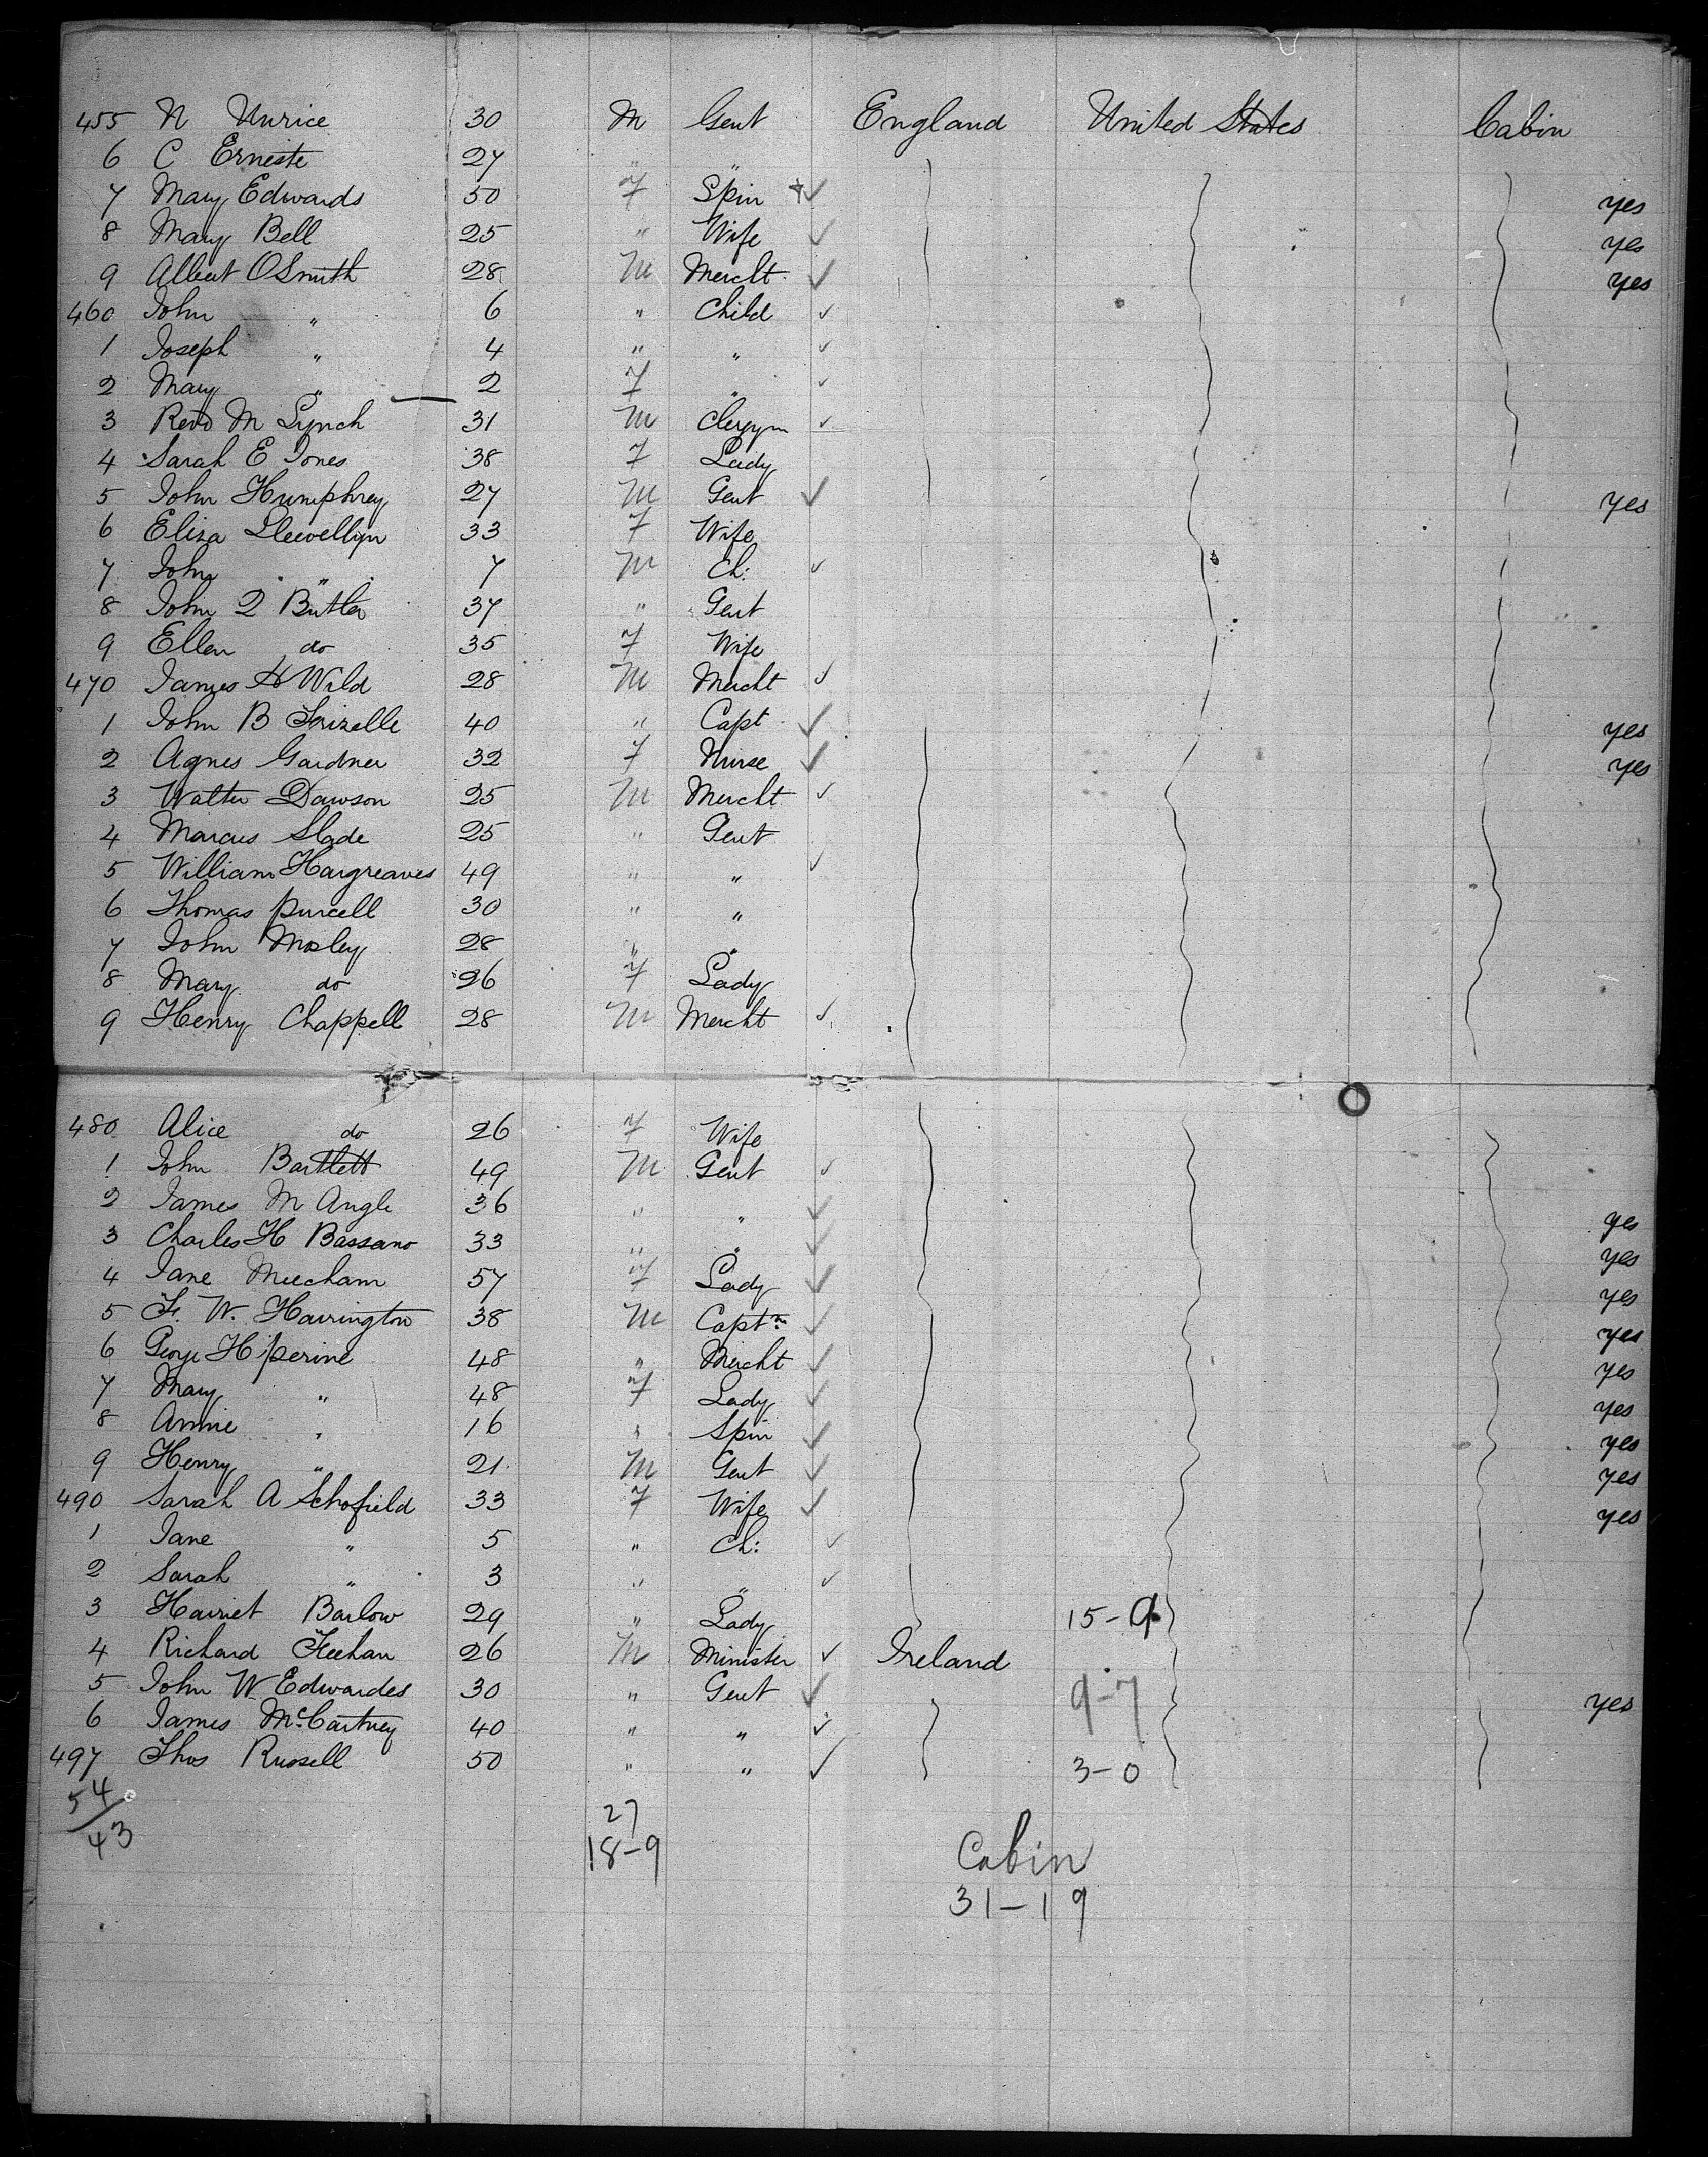 455 N Unrice 30 M Gent England United States Cabin
6 C Erneste 27 " "
7 Mary Edwards 50 F Spin yes
8 Mary Bell 25 " Wife yes
9 Albert O Smith 28 M Mercht yes
460 John " 6 " Child
1 Joseph " 4 " "
2 Mary " 2 F "
3 Revd M Lynch 31 M Clergym
4 Sarah E Jones 38 F Lady
5 John Humphrey 27 M Gent yes
6 Eliza Llewellyn 33 F Wife
7 John " 7 M Ch:
8 John Q Butler 37 " Gent
9 Ellen do 35 F Wife
470 James H Wild 28 M Mercht
1 John B Frizelle 40 " Capt yes
2 Agnes Gardner 32 F Nurse yes
3 Walter Dawson 25 M Mercht
4 Marcus Slade 25 " Gent
5 William Hargreaves 49 " "
6 Thomas Purcell 30 " "
7 John Mosley 28 " "
8 Mary do 26 F Lady
9 Henry Chappell 28 M Mercht
480 Alice do 26 F Wife
1 John Bartlett 49 M Gent
2 James M Angle 36 " " yes
3 Charles H Bassano 33 " " yes
4 Jane Meecham 57 F Lady yes
5 F. W. Harrington 38 M Captn yes
6 George H Perine 48 " Mercht yes
7 Mary " 48 F Lady yes
8 Annie " 16 " Spin yes
9 Henry " 21 M Gent yes
490 Sarah A Schofield 33 F Wife yes
1 Jane " 5 " Ch:
2 Sarah " 3 " "
3 Harriet Barlow 29 " Lady 15-9
4 Richard Feehan 26 M Minister Ireland
5 John W Edwardes 30 " Gent 9-7 yes
6 James McCartney 40 " "
497 Thos Russell 50 " " 3-0
54
43
27
18-9
Cabin
31-19